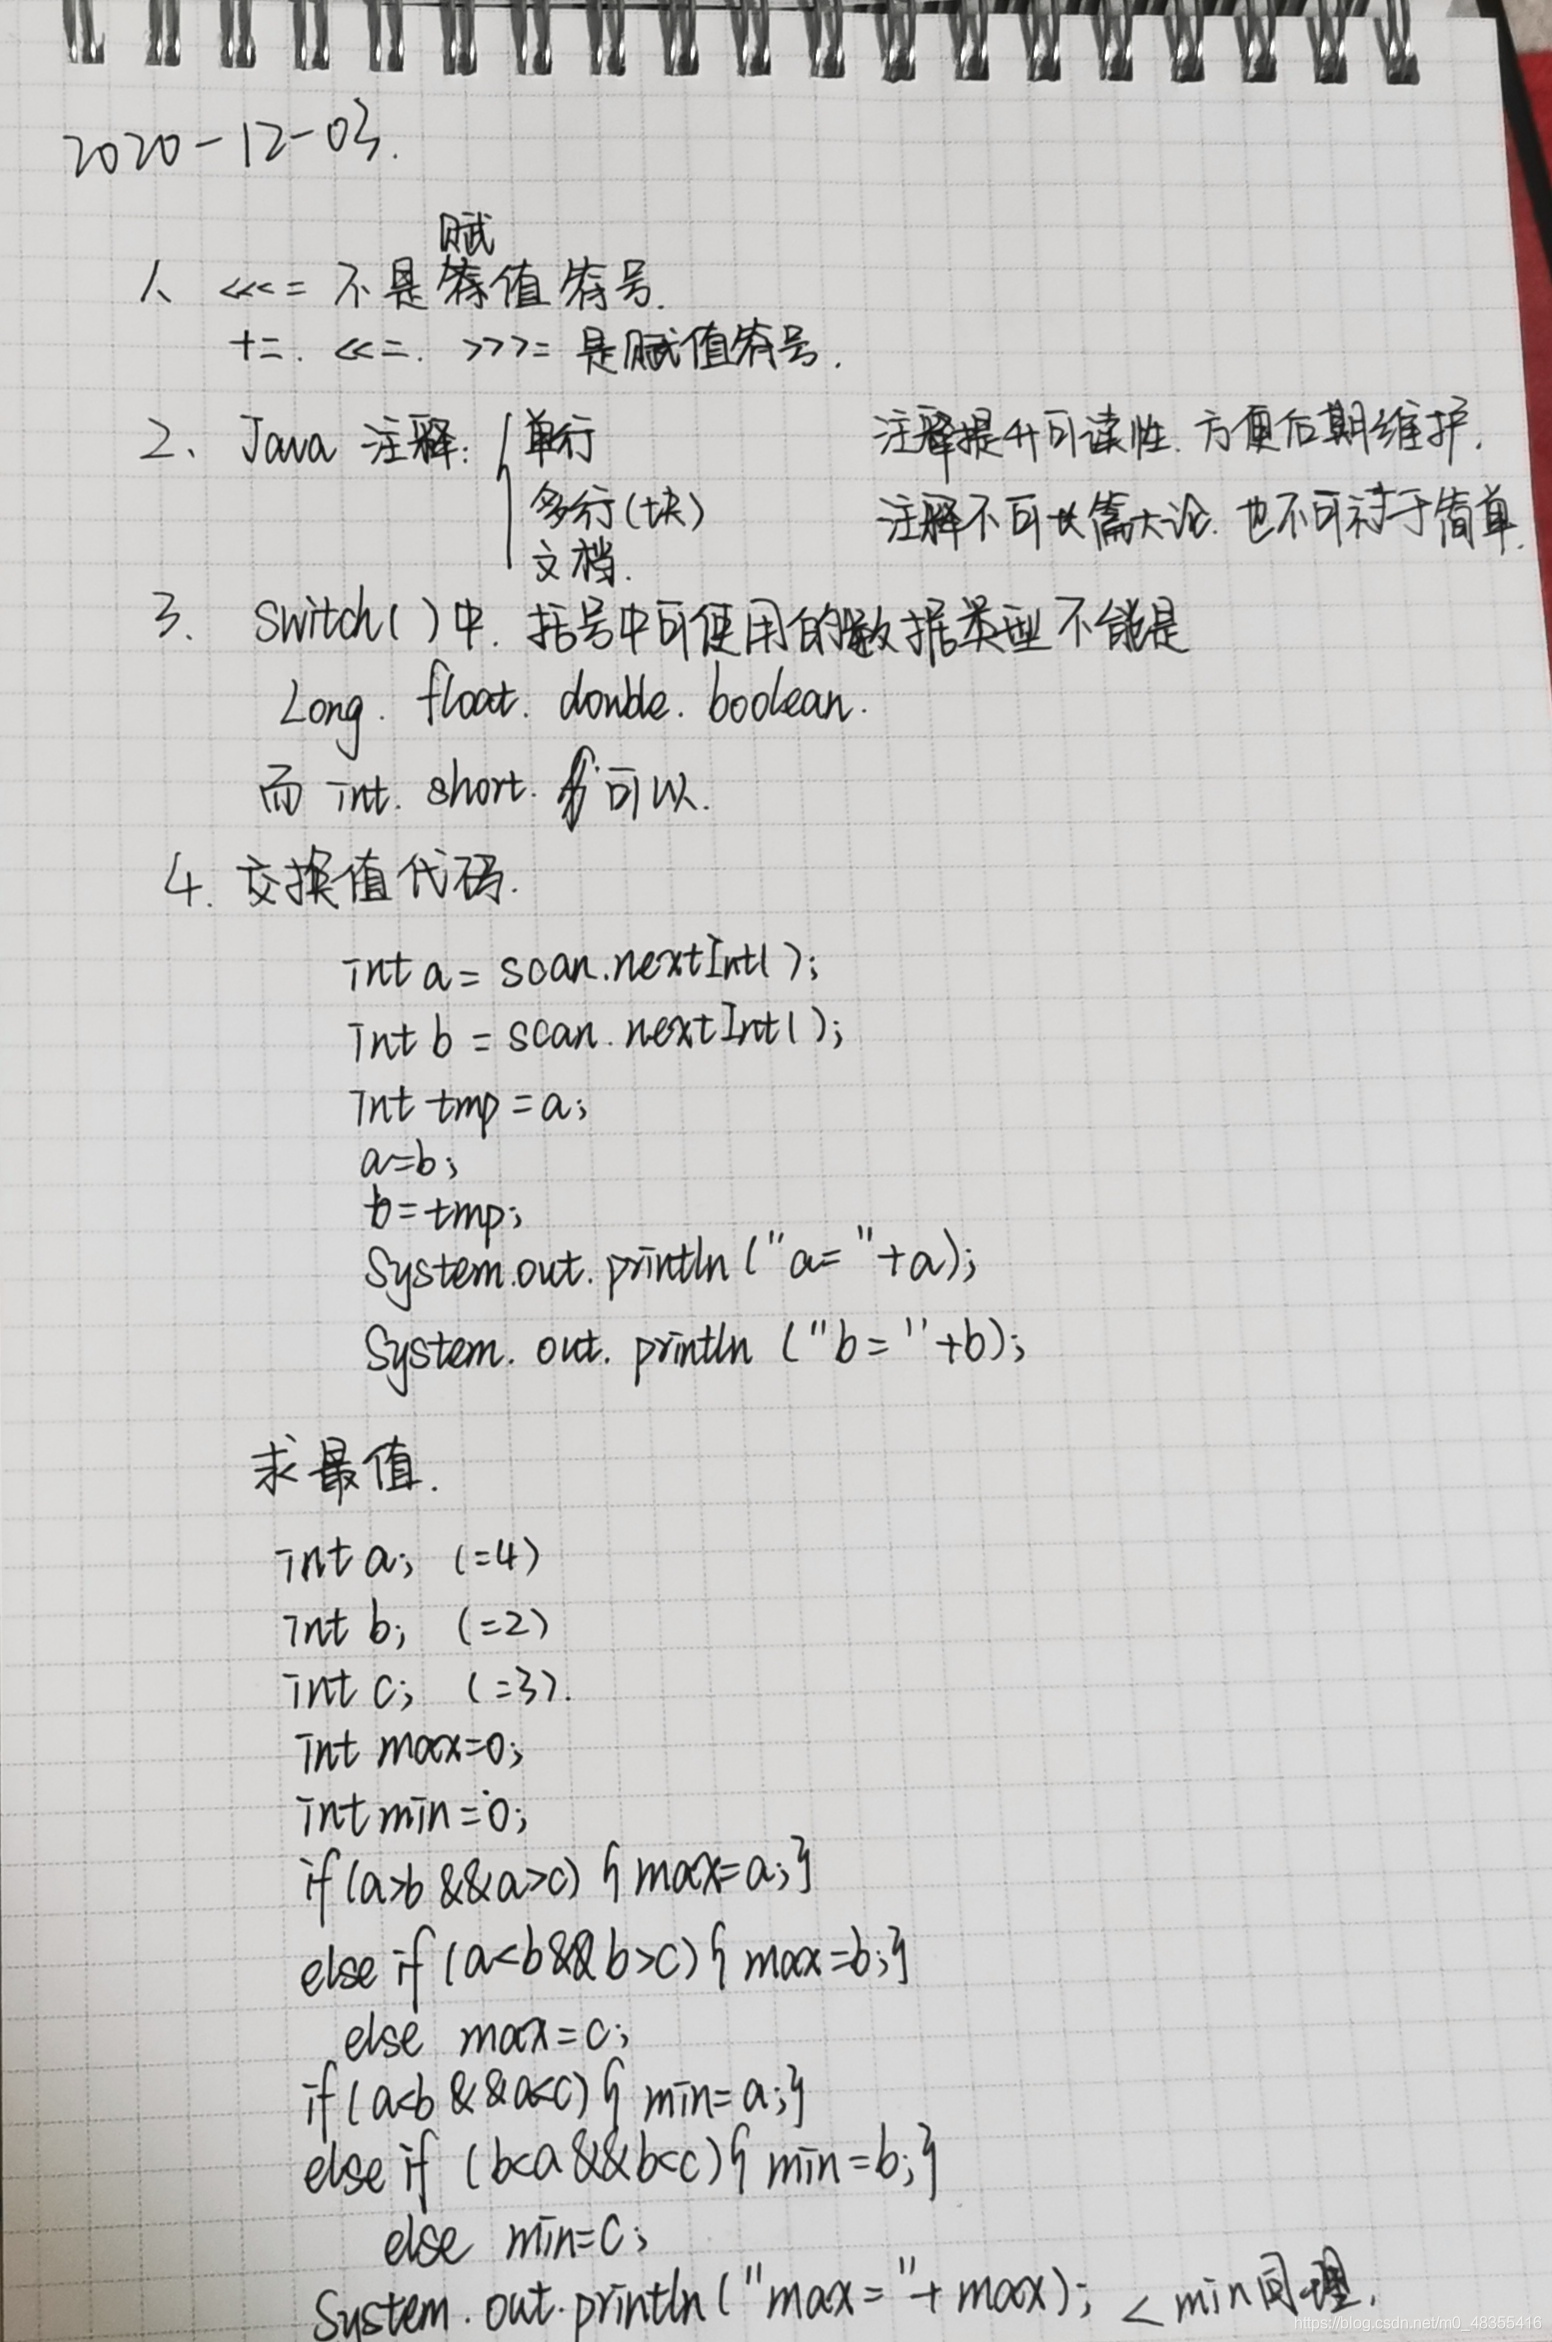 2020-12-03.
赋
1、 <<<= 不是符值符号.
+=. <<=. >>>= 是赋值符号.
2、 Java 注释: { 单行 注释提升可读性. 方便后期维护.
多行(块) 注释不可长篇大论. 也不可过于简单.
文档.
3、 Switch( )中. 括号中可使用的数据类型不能是
Long. float. double. boolean.
而 int. short. 可以.
4. 交换值代码.
int a = scan.nextInt( );
int b = scan.nextInt( );
int tmp = a;
a=b;
b=tmp;
System.out.println ("a= "+a);
System. out. println ("b= "+b);
求最值.
int a; (=4)
int b; (=2)
int c; (=3).
int max=0;
int min=0;
if (a>b &&a>c) { max=a;}
else if (a<b&&b>c) { max=b;}
else max=c;
if (a<b &&a<c) { min=a;}
else if (b<a&&b<c){ min=b;}
else min=c;
System.out.println("max= "+max); < min同理.
https://blog.csdn.net/m0_48355416